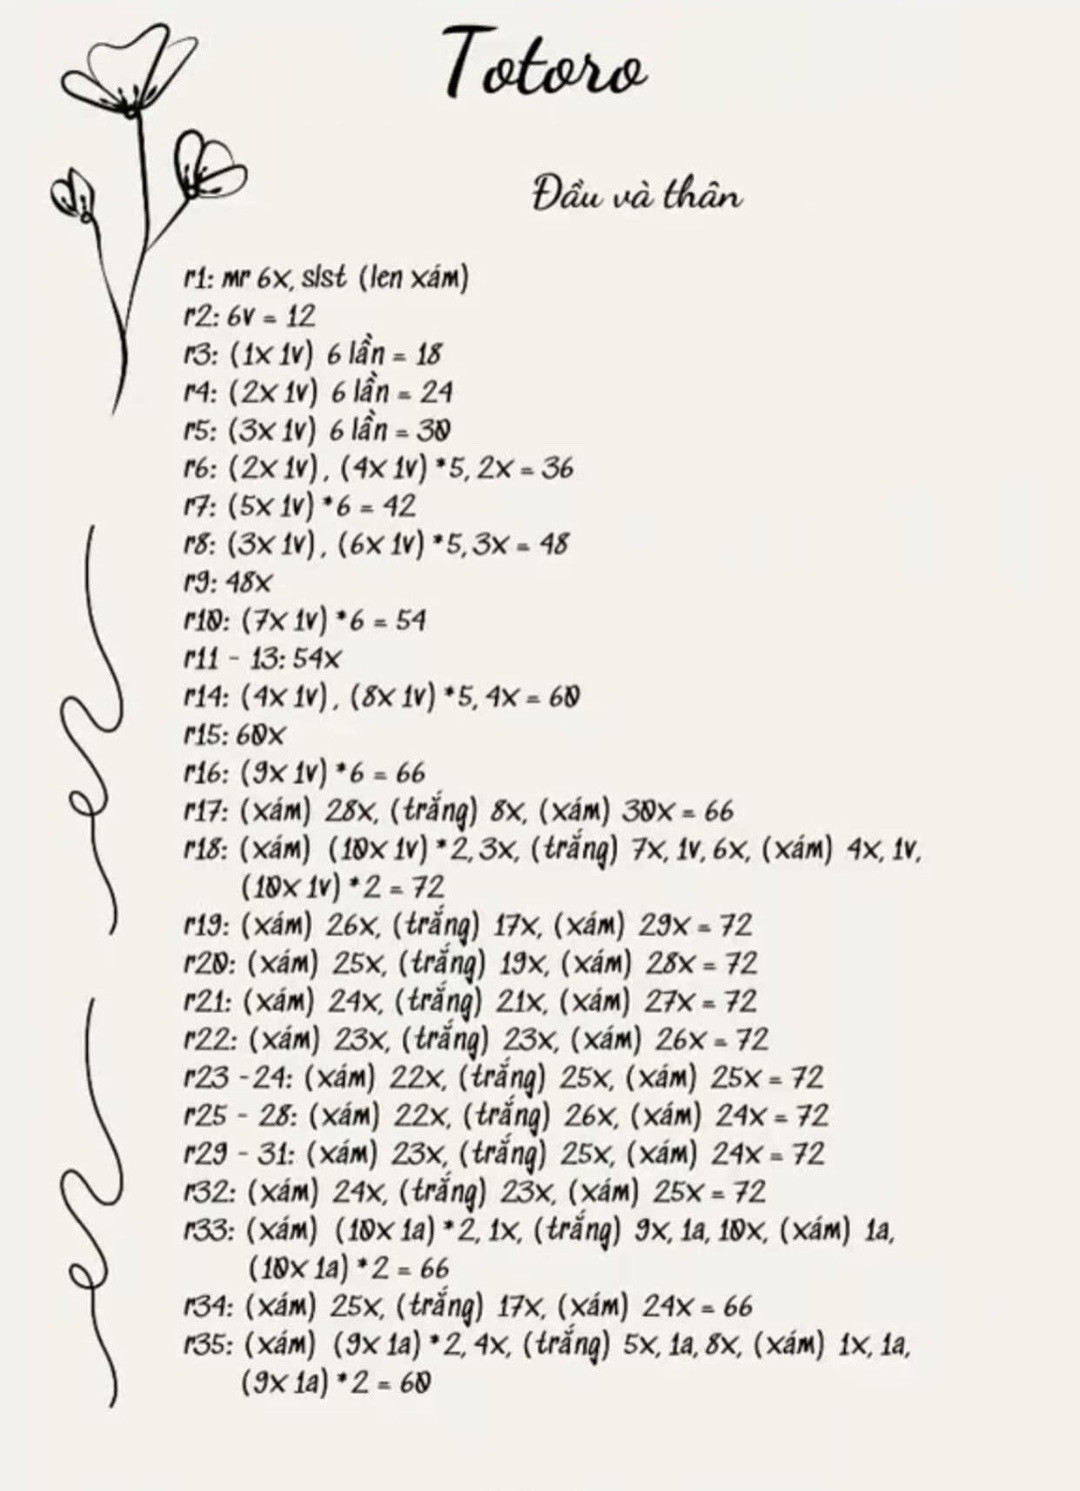 Totoro
Đầu và thân
r1: mr 6x, slst (len xám)
r2: 6v = 12
r3: (1x 1v) 6 lần = 18
r4: (2x 1v) 6 lần = 24
r5: (3x 1v) 6 lần = 30
r6: (2x 1v), (4x 1v) *5, 2x = 36
r7: (5x 1v) *6 = 42
r8: (3x 1v), (6x 1v) *5, 3x = 48
r9: 48x
r10: (7x 1v) *6 = 54
r11 - 13: 54x
r14: (4x 1v), (8x 1v) *5, 4x = 60
r15: 60x
r16: (9x 1v) *6 = 66
r17: (xám) 28x, (trắng) 8x, (xám) 30x = 66
r18: (xám) (10x 1v) *2, 3x, (trắng) 7x, 1v, 6x, (xám) 4x, 1v,
(10x 1v) *2 = 72
r19: (xám) 26x, (trắng) 17x, (xám) 29x = 72
r20: (xám) 25x, (trắng) 19x, (xám) 28x = 72
r21: (xám) 24x, (trắng) 21x, (xám) 27x = 72
r22: (xám) 23x, (trắng) 23x, (xám) 26x = 72
r23 - 24: (xám) 22x, (trắng) 25x, (xám) 25x = 72
r25 - 28: (xám) 22x, (trắng) 26x, (xám) 24x = 72
r29 - 31: (xám) 23x, (trắng) 25x, (xám) 24x = 72
r32: (xám) 24x, (trắng) 23x, (xám) 25x = 72
r33: (xám) (10x 1a) *2, 1x, (trắng) 9x, 1a, 10x, (xám) 1a,
(10x 1a) *2 = 66
r34: (xám) 25x, (trắng) 17x, (xám) 24x = 66
r35: (xám) (9x 1a) *2, 4x, (trắng) 5x, 1a, 8x, (xám) 1x, 1a,
(9x 1a) *2 = 60